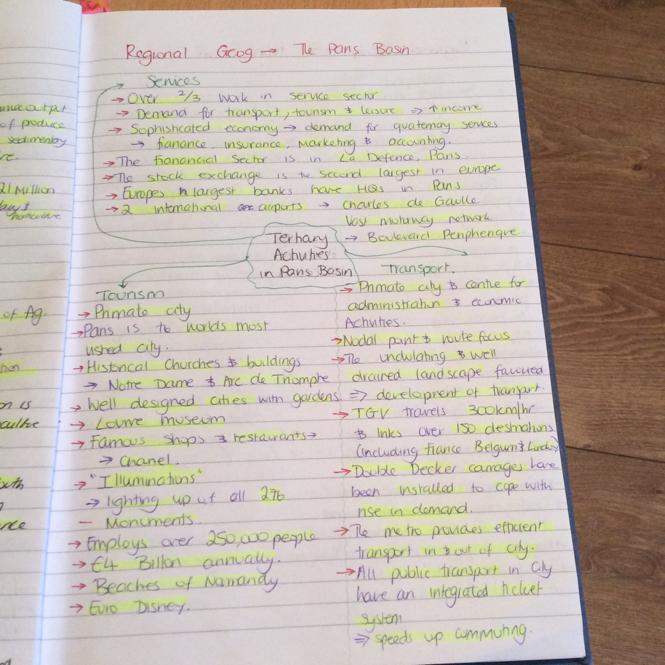 output
of produce
sedimentary
21 Million
of Ag.
on is
Regional Geog → The Paris Basin
Services
→ Over 2/3 work in service sector
→ Demand for transport, tourism & leisure ⇒ ↑ income
→ Sophisticated economy → demand for quaternary services
→ finance, insurance, marketing & accounting.
→ The financial Sector is in La Defence, Paris.
→ The stock exchange is the second largest in europe
→ Europes largest banks have HQs in Paris
→ 2 international airports → Charles de Gaulle
Vast motorway network
→ Boulevard Peripherique
Tertiary
Activities
in Paris Basin
Tourism
→ Primate city
→ Paris is the worlds most
visited city.
→ Historical Churches & buildings
→ Notre Dame & Arc de Triomphe
→ Well designed cities with gardens
→ Louvre museum
→ Famous shops & restaurants →
→ Chanel.
→ "Illuminations"
→ lighting up of all 276
— Monuments.
→ Employs over 250,000 people
→ €4 Billion annually.
→ Beaches of Normandy
→ Euro Disney.
Transport.
→ Primate city & centre for
administration & economic
Activities.
→ Nodal point & route focus
→ The undulating & well
drained landscape favoured
⇒ development of transport
→ TGV travels 300km/hr
& links over 150 destinations
(including france Belgium &
→ Double Decker carriages have
been installed to cope with
rise in demand.
→ The metro provides efficient
transport in & out of city.
→ All public transport in city
have an integrated ticket
system
⇒ speeds up commuting.